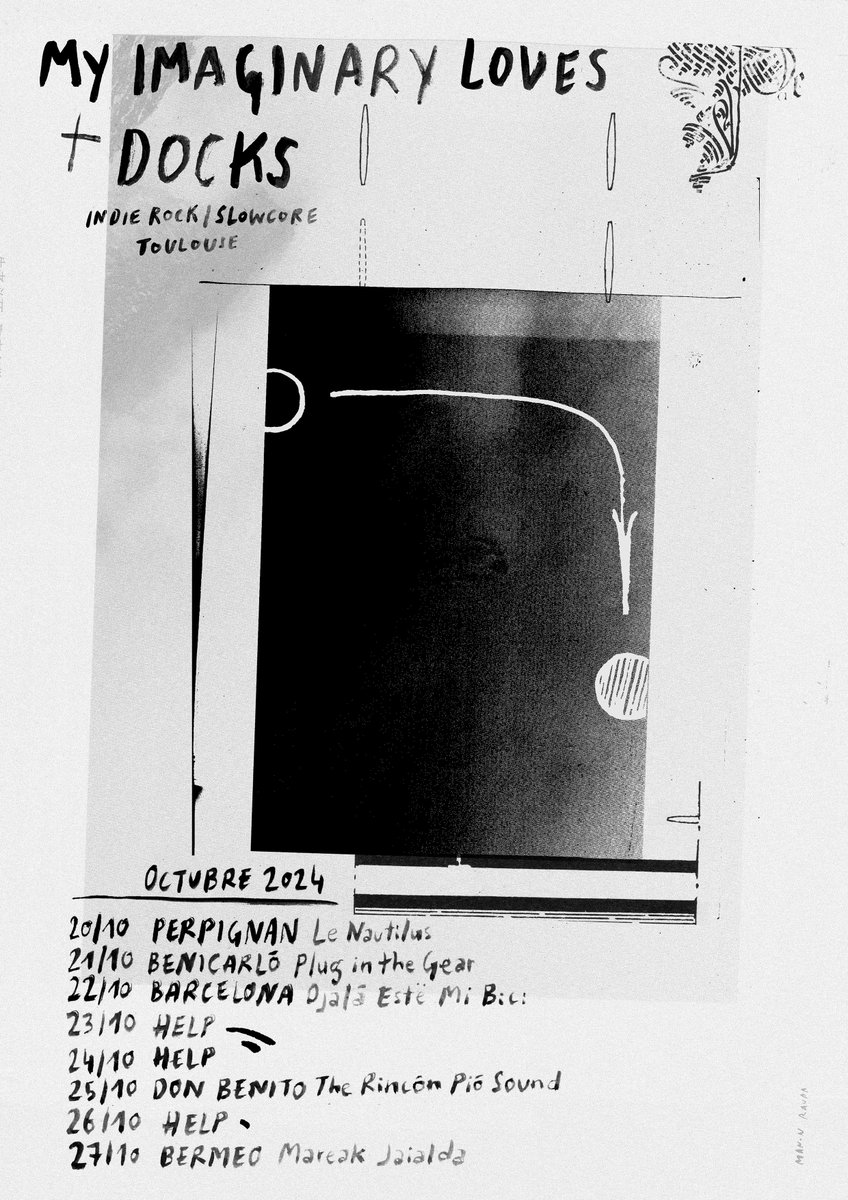 MY IMAGINARY LOVES
+ DOCKS
INDIE ROCK/SLOWCORE
TOULOUSE
OCTUBRE 2024
20/10 PERPIGNAN Le Nautilus
21/10 BENICARLÓ Plug in the Gear
22/10 BARCELONA Ojalá Esté Mi Bici
23/10 HELP
24/10 HELP
25/10 DON BENITO The Rincón Pío Sound
26/10 HELP
27/10 BERMEO Mareak Jaialdia